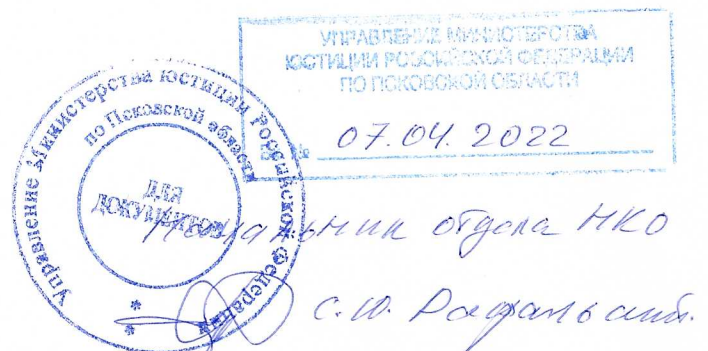 УПРАВЛЕНИЕ МИНИСТЕРСТВА
ЮСТИЦИИ РОССИЙСКОЙ ФЕДЕРАЦИИ
ПО ПСКОВСКОЙ ОБЛАСТИ
07.04.2022
Управление Министерства юстиции Российской Федерации
по Псковской области
ДЛЯ
ДОКУМЕНТОВ
Начальник отдела НКО
С.Ю.